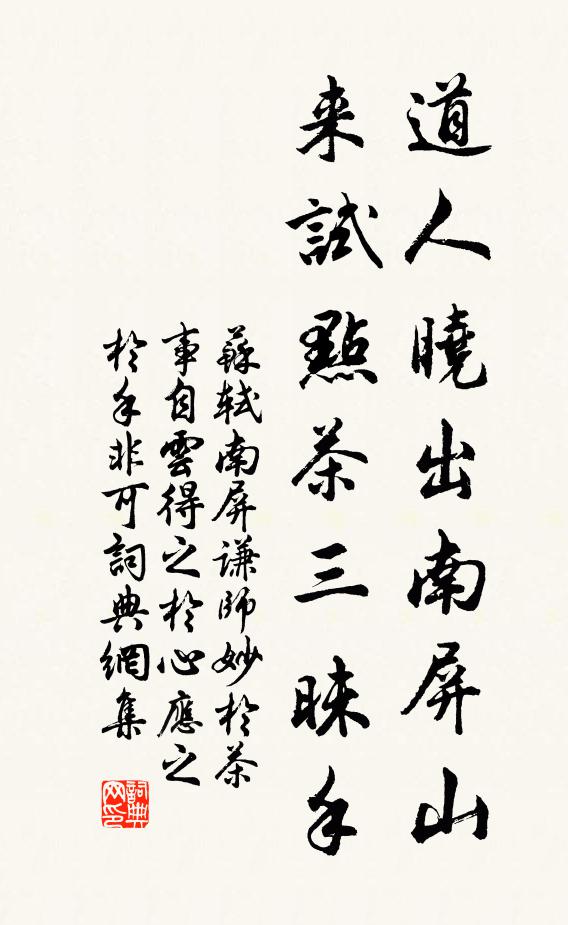 道人曉出南屏山
来試點茶三昧手
蘇軾南屏謙師妙於茶
事自雲得之於心應之
於手非可詞典網集
詞典
网印